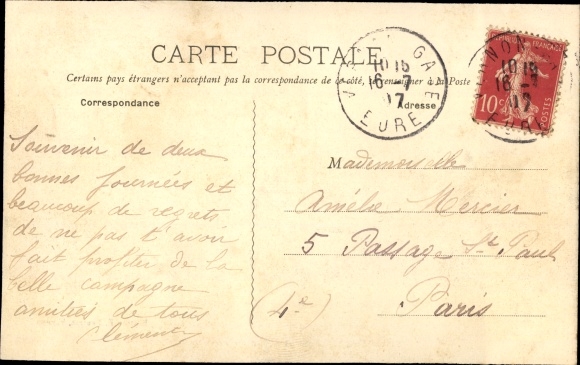 CARTE POSTALE
Certains pays étrangers n'acceptant pas la correspondance de ce côté, se renseigner à la Poste
Correspondance
Adresse
Souvenir de deux
bonnes journées et
beaucoup de regrets
de ne pas t'avoir
fait profiter de la
belle campagne
amitiés de tous
Clémence
Mademoiselle
Amélie Mercier
5 Passage St Paul
Paris
(4e)
GARE
EURE
10 15
16 - 7
07
10 c
POSTES